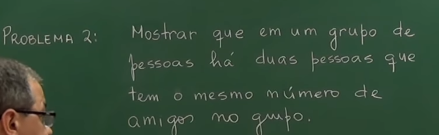 PROBLEMA 2: Mostrar que em um grupo de
pessoas há duas pessoas que
tem o mesmo número de
amigos no grupo.